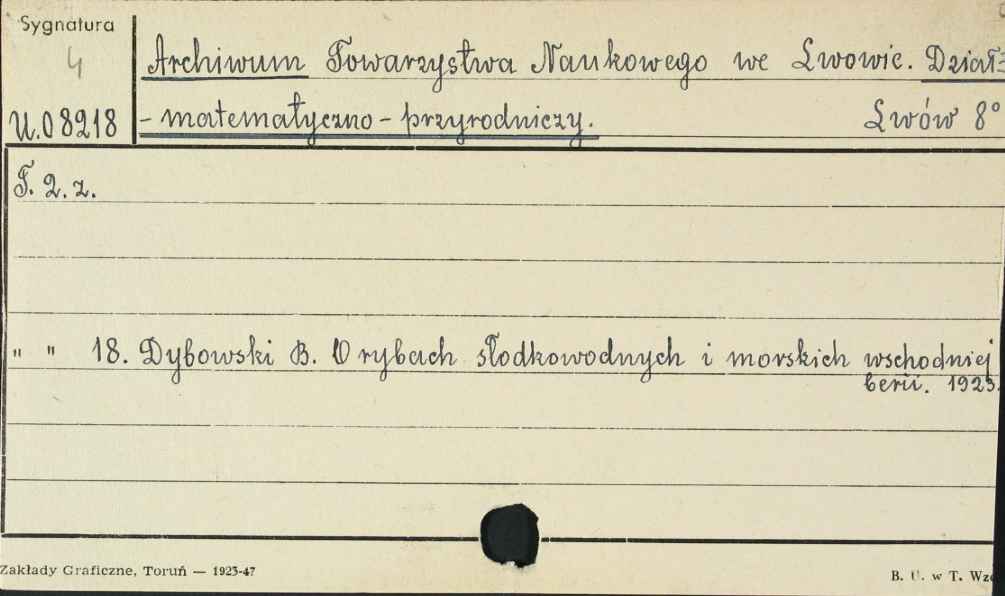 Sygnatura
4
U.08218
Archiwum Towarzystwa Naukowego we Lwowie. Dział=
- matematyczno - przyrodniczy. Lwów 8°
T. 2. z.
" " 18. Dybowski B. O rybach słodkowodnych i morskich wschodniej
berii. 1923.
Zakłady Graficzne, Toruń — 1923-47
B. U. w T. Wzó